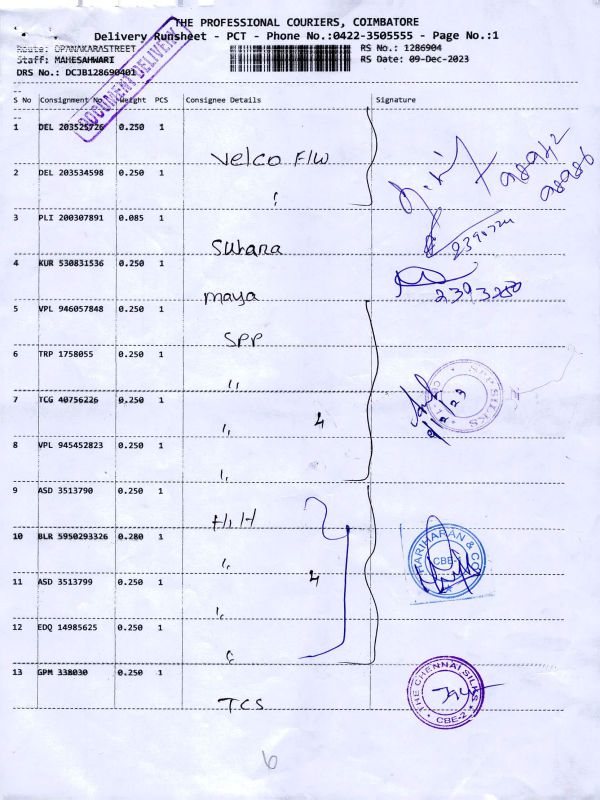 THE PROFESSIONAL COURIERS, COIMBATORE
Delivery Runsheet - PCT - Phone No.:0422-3505555 - Page No.:1
Route: OPANAKARASTREET
RS No.: 1286904
Staff: MAHESAHWARI
RS Date: 09-Dec-2023
DRS No.: DCJB128690401
DOCUMENT DELIVERY
S No Consignment No. Weight PCS Consignee Details Signature
1 DEL 203525726 0.250 1
Velco F/W
2 DEL 203534598 0.250 1
"
3 PLI 200307891 0.085 1
Suhana
4 KUR 530831536 0.250 1
maya
5 VPL 946057848 0.250 1
SPP
6 TRP 1758055 0.250 1
"
7 TCG 40756226 0.250 1
" 4
8 VPL 945452823 0.250 1
"
SPP SILKS
9 ASD 3513790 0.250 1
H/H
10 BLR 5950293326 0.280 1
"
HARIHARAN & CO
CBE-1
11 ASD 3513799 0.250 1
" 4
12 EDQ 14985625 0.250 1
"
13 GPM 338030 0.250 1
TCS
THE CHENNAI SILKS
CBE-2
6